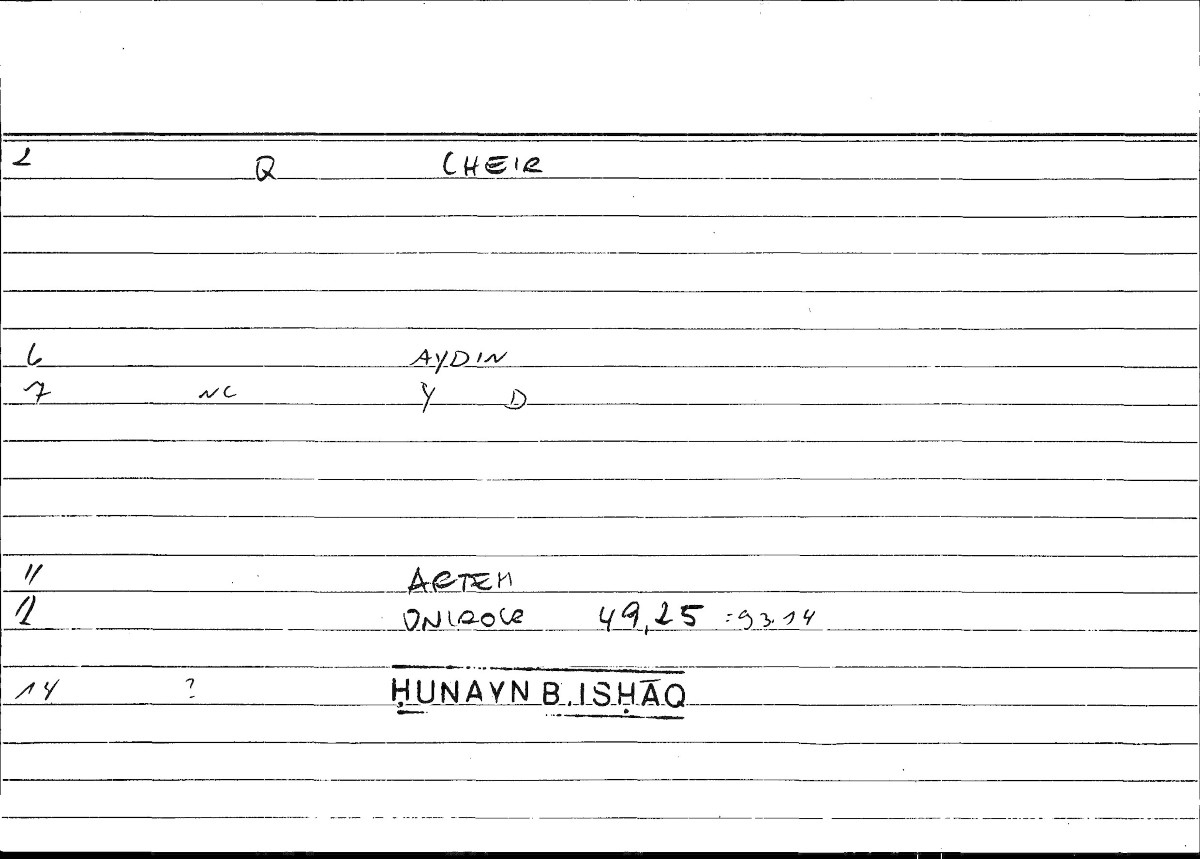 2 Q CHEIR
6 AYDIN
7 NC Y D
11 ARTEM
12 ONIROCR 49,25 :93.14
14 ? ḤUNAYN B. ISḤĀQ